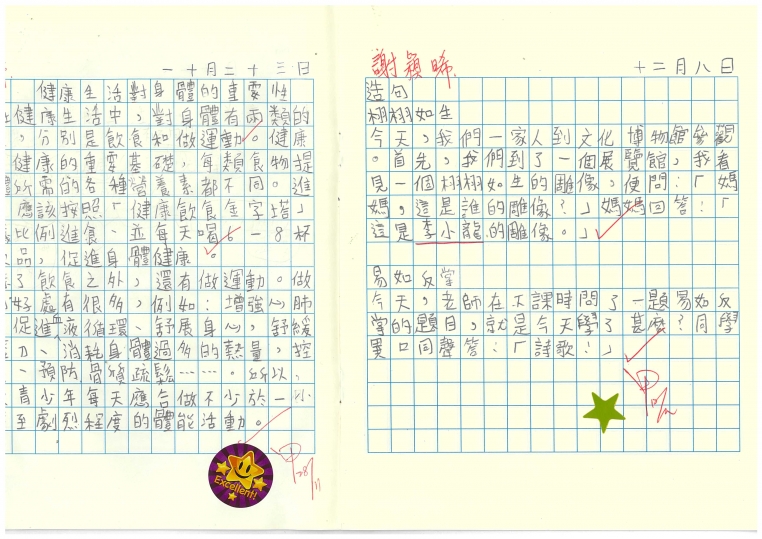 一十月二十三日
健康生活對身體的重要性
健康生活中，對身體有兩類的
，分別是飲食和做運動。健康
健康的重要基礎，每類食物提
所需的各種營養素都不同。進
應該按照「健康飲食金字塔」
比例進食、並每天喝6－8杯
品，促進身體健康。
了飲食之外，還有做運動。做
好處有很多，例如：增強心肺
促進血液循環、舒展身心，舒緩
力、消耗身體過多的熱量，控
、預防骨質疏鬆……。所以，
青少年每天應合做不少於一小
至劇烈程度的體能活動。
Excellent!
28/11
謝穎晞
十二月八日
造句
栩栩如生
今天，我們一家人到文化博物館參觀
。首先，我們到了一個展覽館，我看
見一個栩栩如生的雕像，便問：「媽
媽，這是誰的雕像？」媽媽回答：「
這是李小龍的雕像。」
易如反掌
今天，老師在下課時問了一題易如反
掌的題目，就是今天學了甚麼？同學
異口同聲答：「詩歌！」